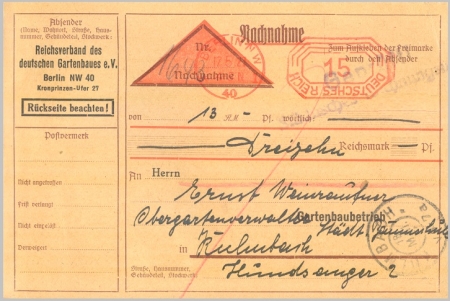 Absender
(Name, Wohnort, Straße, Haus-
nummer, Gebäudeteil, Stockwerk)
Reichsverband des
deutschen Gartenbaues e.V.
Berlin NW 40
Kronprinzen-Ufer 27
Rückseite beachten!
Postvermerk
Nicht angetroffen
Frist verlangt
Nicht eingelöst
Verweigert
Nachnahme
Nr.
Nachnahme
40
Zum Aufkleben der Freimarke
durch den Absender
15
DEUTSCHES REICH
von 13.- RM - Pf. wörtlich
Dreizehn Reichsmark - Pf.
An Herrn
Ernst Weinrautner
Obergartenverwalter Städt.
Gartenbaubetrieb
in Kulmbach
Straße, Hausnummer,
Gebäudeteil, Stockwerk
Hundsanger 2